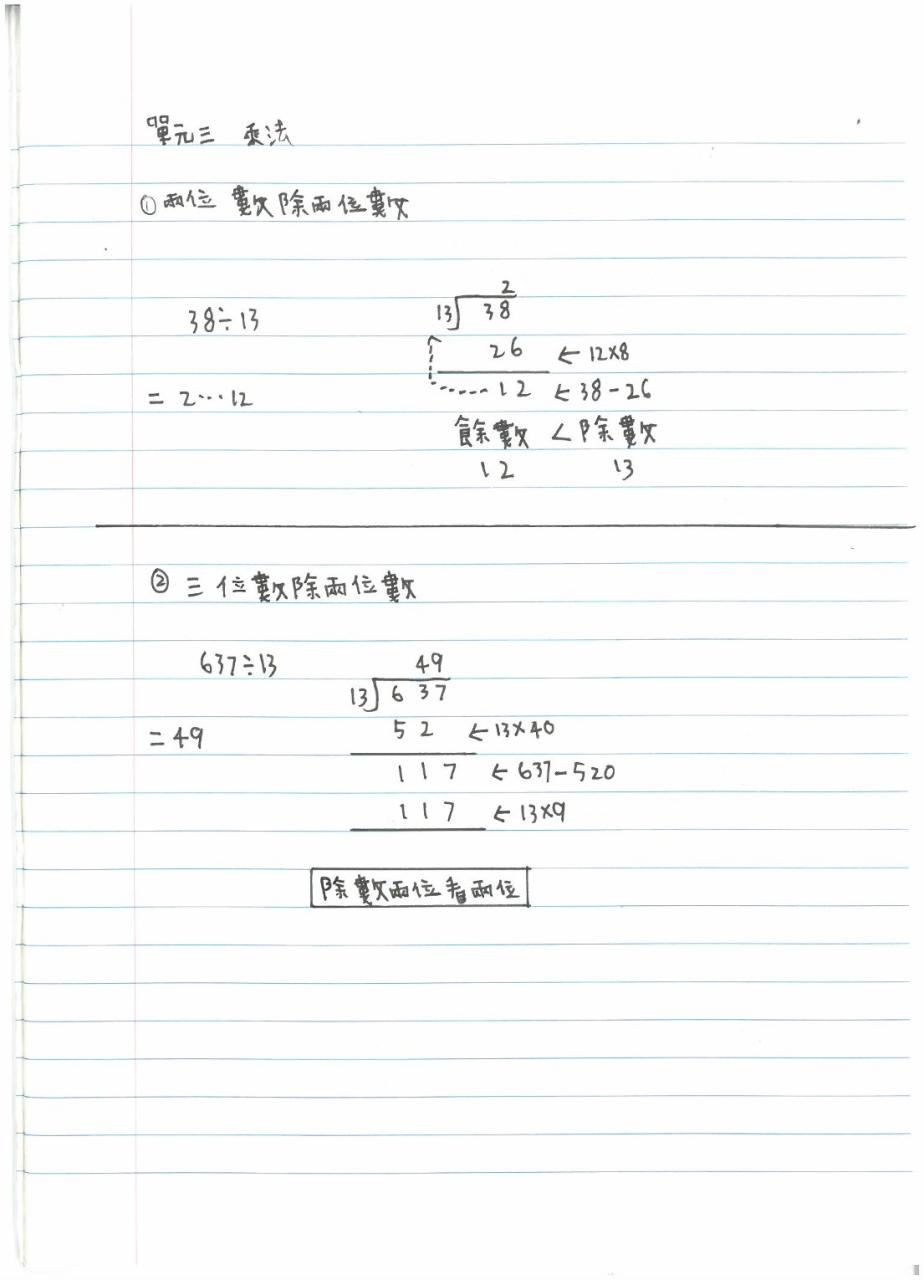 單元三 乘法
①兩位數除兩位數
38÷13
= 2…12
2
13 38
26 ← 12×8
12 ← 38-26
餘數 < 除數
12 13
② 三位數除兩位數
637÷13
= 49
49
13 637
52 ← 13×40
117 ← 637-520
117 ← 13×9
除數兩位看兩位